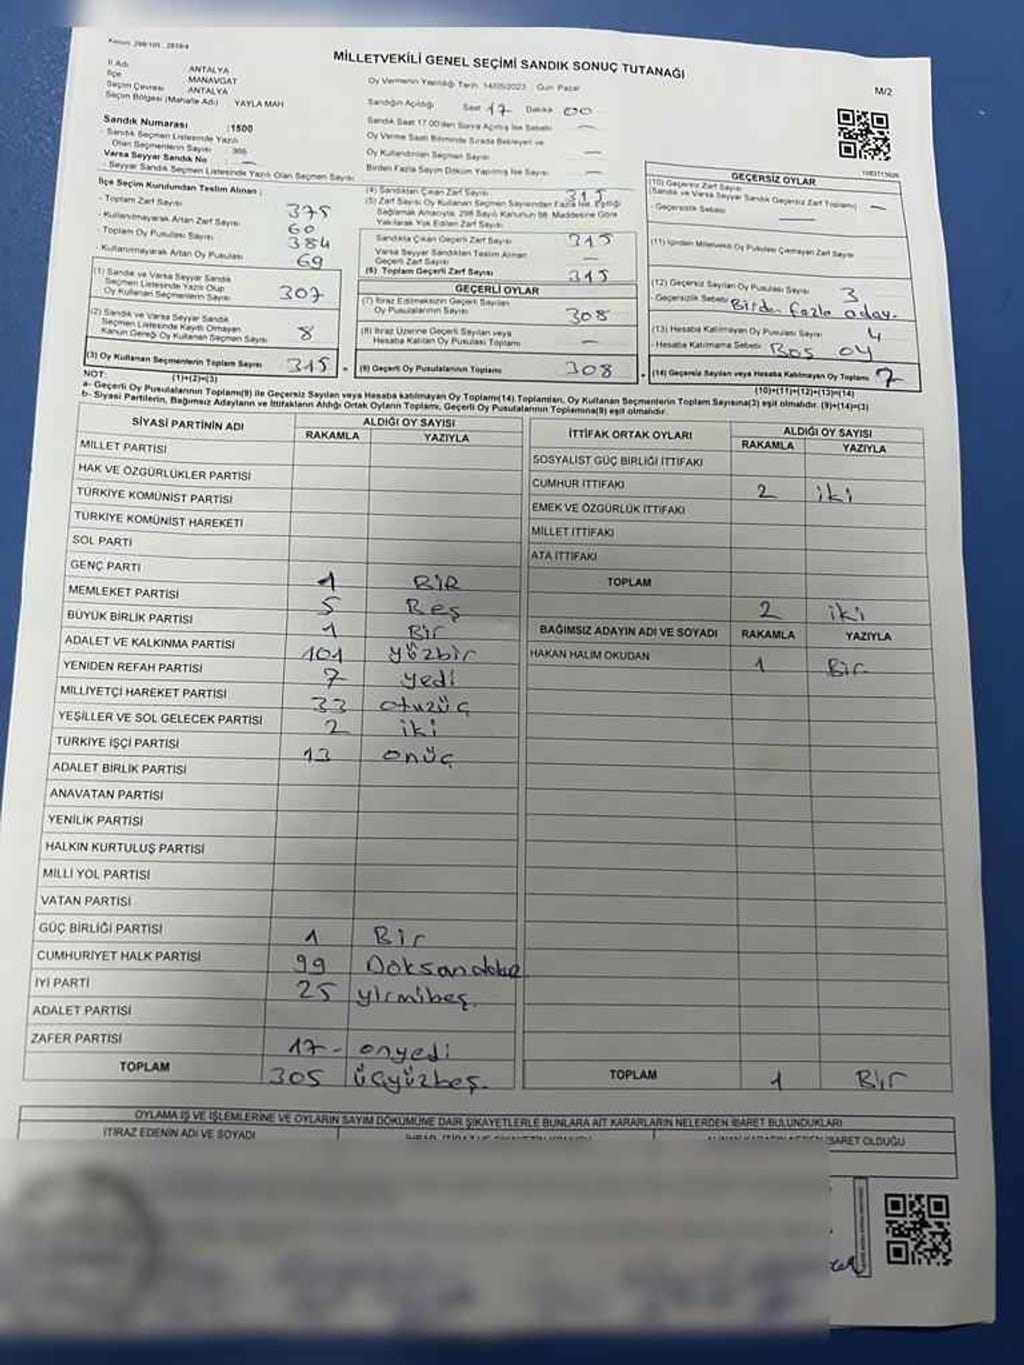 MİLLETVEKİLİ GENEL SEÇİMİ SANDIK SONUÇ TUTANAĞI
M/2
İl Adı ANTALYA
İlçe MANAVGAT
Seçim Çevresi ANTALYA
Seçim Bölgesi (Mahalle Adı) YAYLA MAH
Oy Vermenin Yapıldığı Tarih 14/05/2023 Gün Pazar
Sandığın Açıldığı Saat 17 Dakika 00
Sandık Saat 17.00'den Sonra Açılmış İse Sebebi —
Oy Verme Saati Bitiminde Sırada Bekleyen ve
Oy Kullandırılan Seçmen Sayısı —
Birden Fazla Sayım Döküm Yapılmış İse Sayısı —
Sandık Numarası :1500
- Sandık Seçmen Listesinde Yazılı
Olan Seçmenlerin Sayısı
Varsa Seyyar Sandık No : —
- Seyyar Sandık Seçmen Listesinde Yazılı Olan Seçmen Sayısı
İlçe Seçim Kurulundan Teslim Alınan ;
- Toplam Zarf Sayısı 375
- Kullanılmayarak Artan Zarf Sayısı 60
- Toplam Oy Pusulası Sayısı 384
- Kullanılmayarak Artan Oy Pusulası 69
(1) Sandık ve Varsa Seyyar Sandık
Seçmen Listesinde Yazılı Olup
Oy Kullanan Seçmenlerin Sayısı 307
(2) Sandık ve Varsa Seyyar Sandık
Seçmen Listesinde Kayıtlı Olmayan
Kanun Gereği Oy Kullanan Seçmen Sayısı 8
(3) Oy Kullanan Seçmenlerin Toplam Sayısı 315
(1)+(2)=(3)
(4) Sandıktan Çıkan Zarf Sayısı 315
(5) Zarf Sayısı Oy Kullanan Seçmen Sayısından Fazla İse, Eşitliği
Sağlamak Amacıyla, 298 Sayılı Kanunun 98. Maddesine Göre
Yakılarak Yok Edilen Zarf Sayısı
Sandıkta Çıkan Geçerli Zarf Sayısı 315
Varsa Seyyar Sandıktan Teslim Alınan
Geçerli Zarf Sayısı —
(6) Toplam Geçerli Zarf Sayısı 315
GEÇERLİ OYLAR
(7) İtiraz Edilmeksizin Geçerli Sayılan
Oy Pusulalarının Sayısı 308
(8) İtiraz Üzerine Geçerli Sayılan veya
Hesaba Katılan Oy Pusulası Toplamı —
(9) Geçerli Oy Pusulalarının Toplamı 308
GEÇERSİZ OYLAR
(10) Geçersiz Zarf Sayısı
(Sandık ve Varsa Seyyar Sandık Geçersiz Zarf Toplamı) —
- Geçersizlik Sebebi: —
(11) İçinden Milletvekili Oy Pusulası Çıkmayan Zarf Sayısı
(12) Geçersiz Sayılan Oy Pusulası Sayısı 3
- Geçersizlik Sebebi: Birden fazla aday.
(13) Hesaba Katılmayan Oy Pusulası Sayısı 4
- Hesaba Katılmama Sebebi: Boş oy
(14) Geçersiz Sayılan veya Hesaba Katılmayan Oy Toplamı 7
(10)+(11)+(12)+(13)=(14)
NOT:
a- Geçerli Oy Pusulalarının Toplamı(9) ile Geçersiz Sayılan veya Hesaba katılmayan Oy Toplamı(14) Toplamları, Oy Kullanan Seçmenlerin Toplam Sayısına(3) eşit olmalıdır. (9)+(14)=(3)
b- Siyasi Partilerin, Bağımsız Adayların ve İttifakların Aldığı Ortak Oyların Toplamı, Geçerli Oy Pusulalarının Toplamına(9) eşit olmalıdır.
SİYASİ PARTİNİN ADI ALDIĞI OY SAYISI
RAKAMLA YAZIYLA
MİLLET PARTİSİ
HAK VE ÖZGÜRLÜKLER PARTİSİ
TÜRKİYE KOMÜNİST PARTİSİ
TÜRKİYE KOMÜNİST HAREKETİ
SOL PARTİ
GENÇ PARTİ 1 BİR
MEMLEKET PARTİSİ 5 Beş
BÜYÜK BİRLİK PARTİSİ 1 Bir
ADALET VE KALKINMA PARTİSİ 101 yüzbir
YENİDEN REFAH PARTİSİ 7 yedi
MİLLİYETÇİ HAREKET PARTİSİ 33 otuzüç
YEŞİLLER VE SOL GELECEK PARTİSİ 2 iki
TÜRKİYE İŞÇİ PARTİSİ 13 onüç
ADALET BİRLİK PARTİSİ
ANAVATAN PARTİSİ
YENİLİK PARTİSİ
HALKIN KURTULUŞ PARTİSİ
MİLLİ YOL PARTİSİ
VATAN PARTİSİ
GÜÇ BİRLİĞİ PARTİSİ 1 Bir
CUMHURİYET HALK PARTİSİ 99
İYİ PARTİ 25 yirmibeş.
ADALET PARTİSİ
ZAFER PARTİSİ 17- onyedi
TOPLAM 305 üçyüzbeş.
İTTİFAK ORTAK OYLARI ALDIĞI OY SAYISI
RAKAMLA YAZIYLA
SOSYALİST GÜÇ BİRLİĞİ İTTİFAKI
CUMHUR İTTİFAKI 2 iki
EMEK VE ÖZGÜRLÜK İTTİFAKI
MİLLET İTTİFAKI
ATA İTTİFAKI
TOPLAM 2 iki
BAĞIMSIZ ADAYIN ADI VE SOYADI RAKAMLA YAZIYLA
HAKAN HALİM OKUDAN 1 Bir
TOPLAM 1 Bir
OYLAMA İŞ VE İŞLEMLERİNE VE OYLARIN SAYIM DÖKÜMÜNE DAİR ŞİKAYETLERLE BUNLARA AİT KARARLARIN NELERDEN İBARET BULUNDUKLARI
İTİRAZ EDENİN ADI VE SOYADI
İBARET OLDUĞU